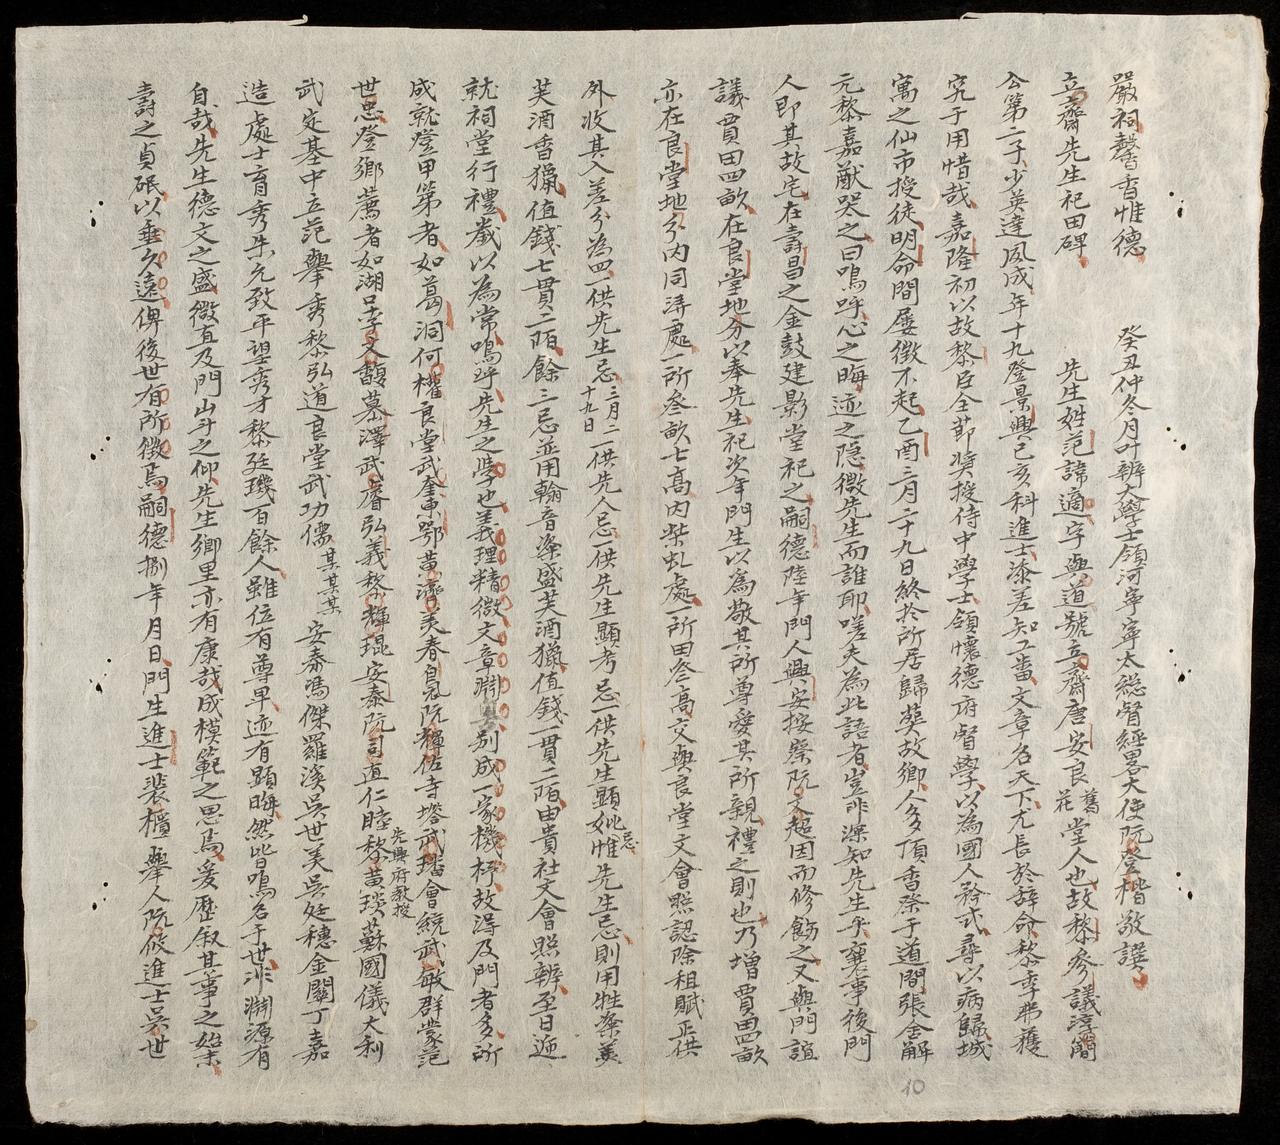 嚴祠馨香惟德　癸丑仲冬月叶辨大學士領河寧寧太總督經畧大使阮登楷敬譔
立齋先生祀田碑　先生姓范諱適字與道號立齋唐安良舊花堂人也故黎參議淳簡
公第二子少英達夙成年十九登景興己亥科進士添差知工畨文章名天下尤長於辞命黎季弗獲
究于用惜哉嘉隆初以故黎臣全節奨授侍中學士領懷德府督學以為國人矜式尋以病歸城
寓之仙市授徒明命間屡徵不起乙酉二月二十九日終於所居歸葬故鄉人多頂香祭于道間張舍解
元黎嘉猷哭之曰嗚呼心之晦迹之隐微先生而誰耶嗟夫為此語者豈非深知先生乎襄事後門
人即其故宅在壽昌之金鼓建影堂祀之嗣德陸年門人興安按察阮文超因而修飭之又與門誼
議買田四畝在良堂地分以奉先生祀次年門生以為敬其所尊愛其所親禮之則也乃增買田四畝
亦在良堂地分内同溽處一所叁畝七高内柴虬處一所田叁高交與良堂文會照認除租賦正供
外收其入差分為四一供先生忌三月二十九日一供先人忌一供先生顯考忌一供先生顯妣忌惟先生忌則用牲粢羙
芙酒香獵值錢七貫二陌餘三忌並用翰音粢盛芙酒獵值錢一貫二陌由貴社文會照辨至日迎
就祠堂行禮歲以為常嗚呼先生之學也義理精微文章淵奥别成一家機杼故淂及門者多所
成就登甲第者如葛洞何權良堂武奎東鄂黃濟美春皃阮輝佐寺塔武璠會統武敏群蒙范
世忠登鄉薦者如湖口李文馥慕澤武睿弘義黎輝琨安泰阮司直仁睦黎黃琰先興府教授蘇國儀大利
武定基中立范舉秀黎弘道良堂武功儒某某某安泰馮傑羅溪吳世美吳廷穗金關丁嘉
造處士育秀朱允致平望秀才黎廷璣百餘人雖位有尊卑迹有顕晦然皆鳴名于世非淵源有
自哉先生德文之盛微直及門山斗之仰先生鄉里亦有康哉成模範之思焉爰歷叙其事之始末
壽之貞珉以垂久遠俾後世有所徵焉嗣德捌年月日門生進士裴櫃舉人阮攸進士吳世
10